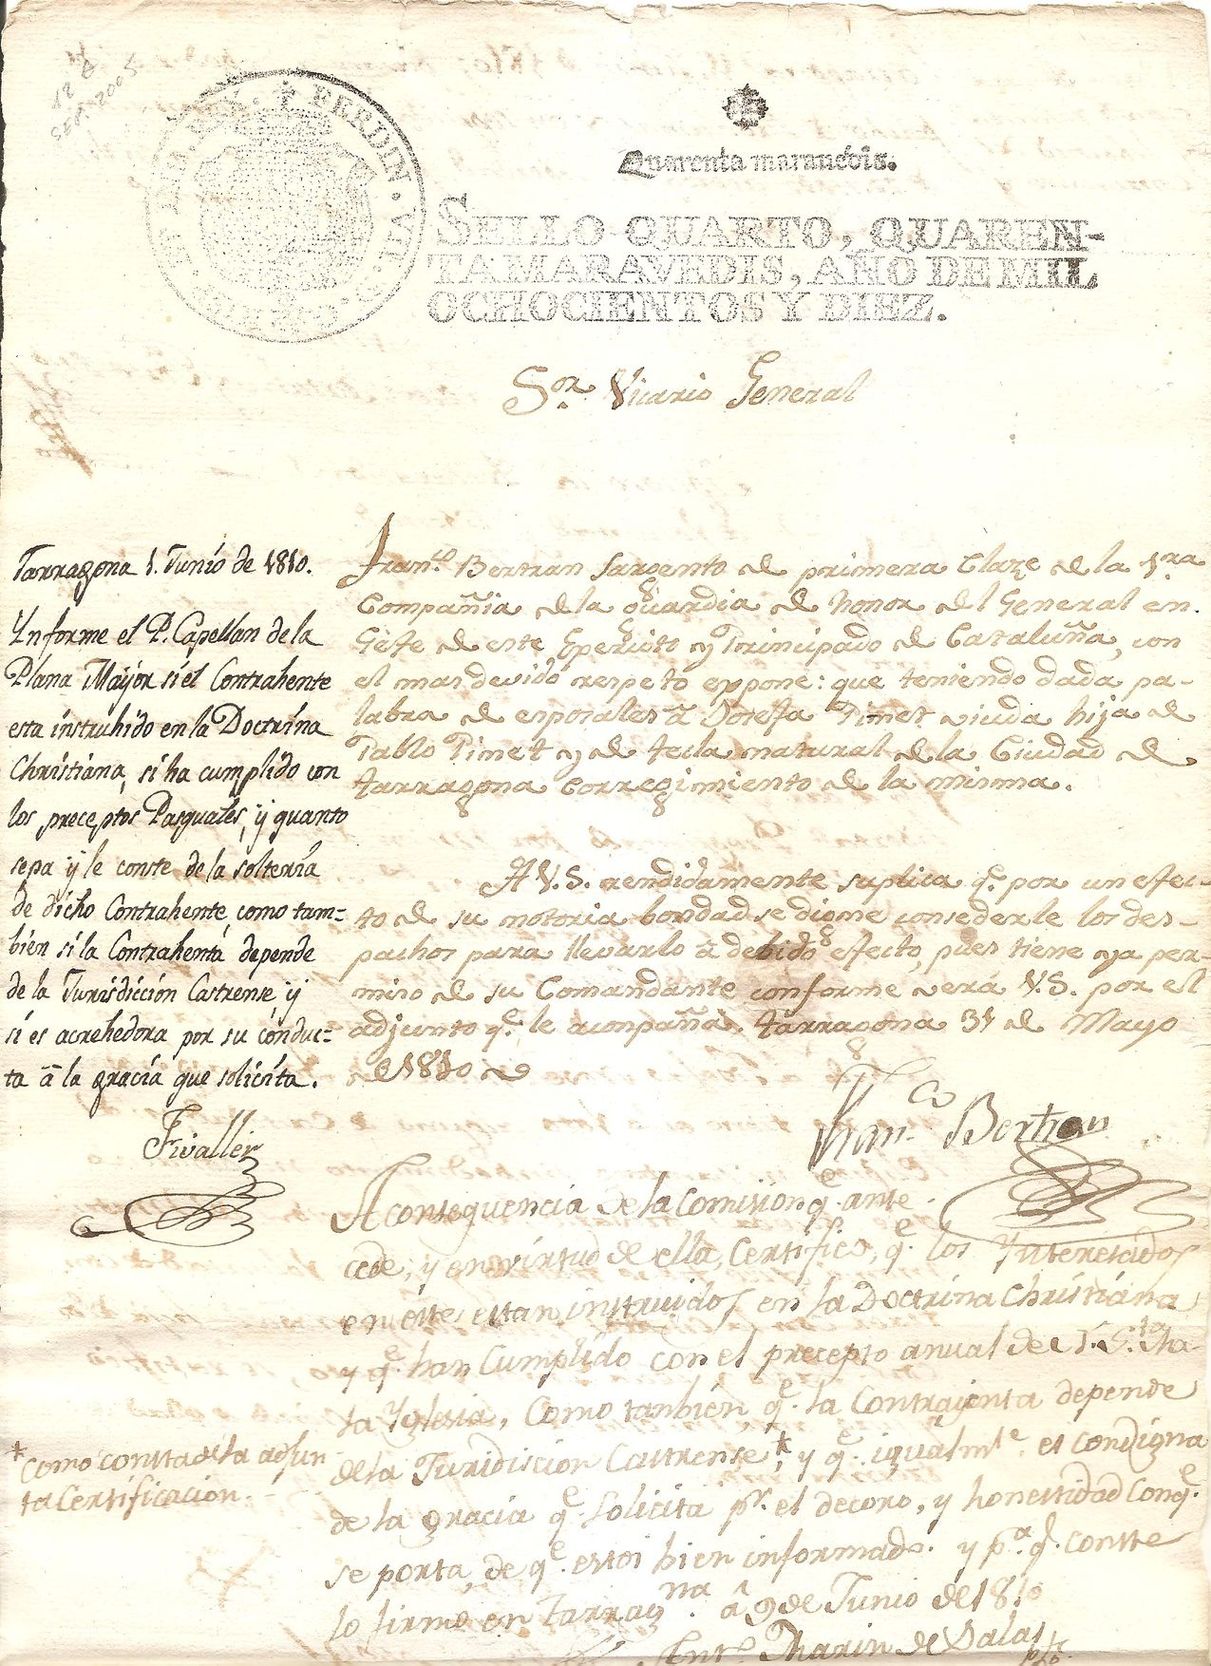 18 6
SEP. 2005
FERDIN. VII. D. G.
Quarenta marauedis.
SELLO QUARTO, QUAREN-
TA MARAVEDIS, AÑO DE MIL
OCHOCIENTOS Y DIEZ.
Sor. Vicario General
Tarragona 1. Junio de 1810.
Ynforme el P. Capellan de la
Plana Mayor si el Contrahente
esta instruhido en la Doctrina
Christiana, si ha cumplido con
los preceptos Pasquales, y quanto
sepa y le conste de la solteria
de dicho Contrahente como tam=
bien si la Contrahenta depende
de la Jurisdiccion Castrense y
si es acrehedora por su conduc=
ta â la gracia que solicita.
Fivaller
Franco. Bertran Sargento de primera Claze de la 1ra
Compañia de la guardia de honor del General en
Gefe de este Egercito y Principado de Cataluña, con
el mas devido respeto expone: que teniendo dada pa-
labra de esposales â Josefa Pimet viuda hija de
Pablo Pimet y de tecla natural de la Ciudad de
tarragona Corregimiento de la misma.
A V.S. rendidamente suplica qe. por un efec-
to de su notoria bondad se digne consederle los des-
pachos para llevarlo â debido efecto, pues tiene ya per-
miso de su Comandante conforme verá V.S. por el
adjunto qe. le acompaña. tarragona 31 de Mayo
de 1810
Franco. Bertran
A consequencia de la Comision qe. ante
cede, y en virtud de ella, Certifico, qe. los Ynteresados
en este, estan instruidos en la Doctrina Christiana
y qe. han Cumplido con el precepto anual de
la Yglesia, Como tanbien qe. la Contrayenta depende
de la Juridiscion Castrense*, y qe. igualmte. es condigna
de la gracia qe. solicita pr. el decoro, y honestidad Conqe.
se porta, de qe. estoi bien informado. y pa. q. conste
lo firmo en Tarragna. â 9 de Junio de 1810
Marin de Salas
* Como consta de la adjun
ta Certificacion.